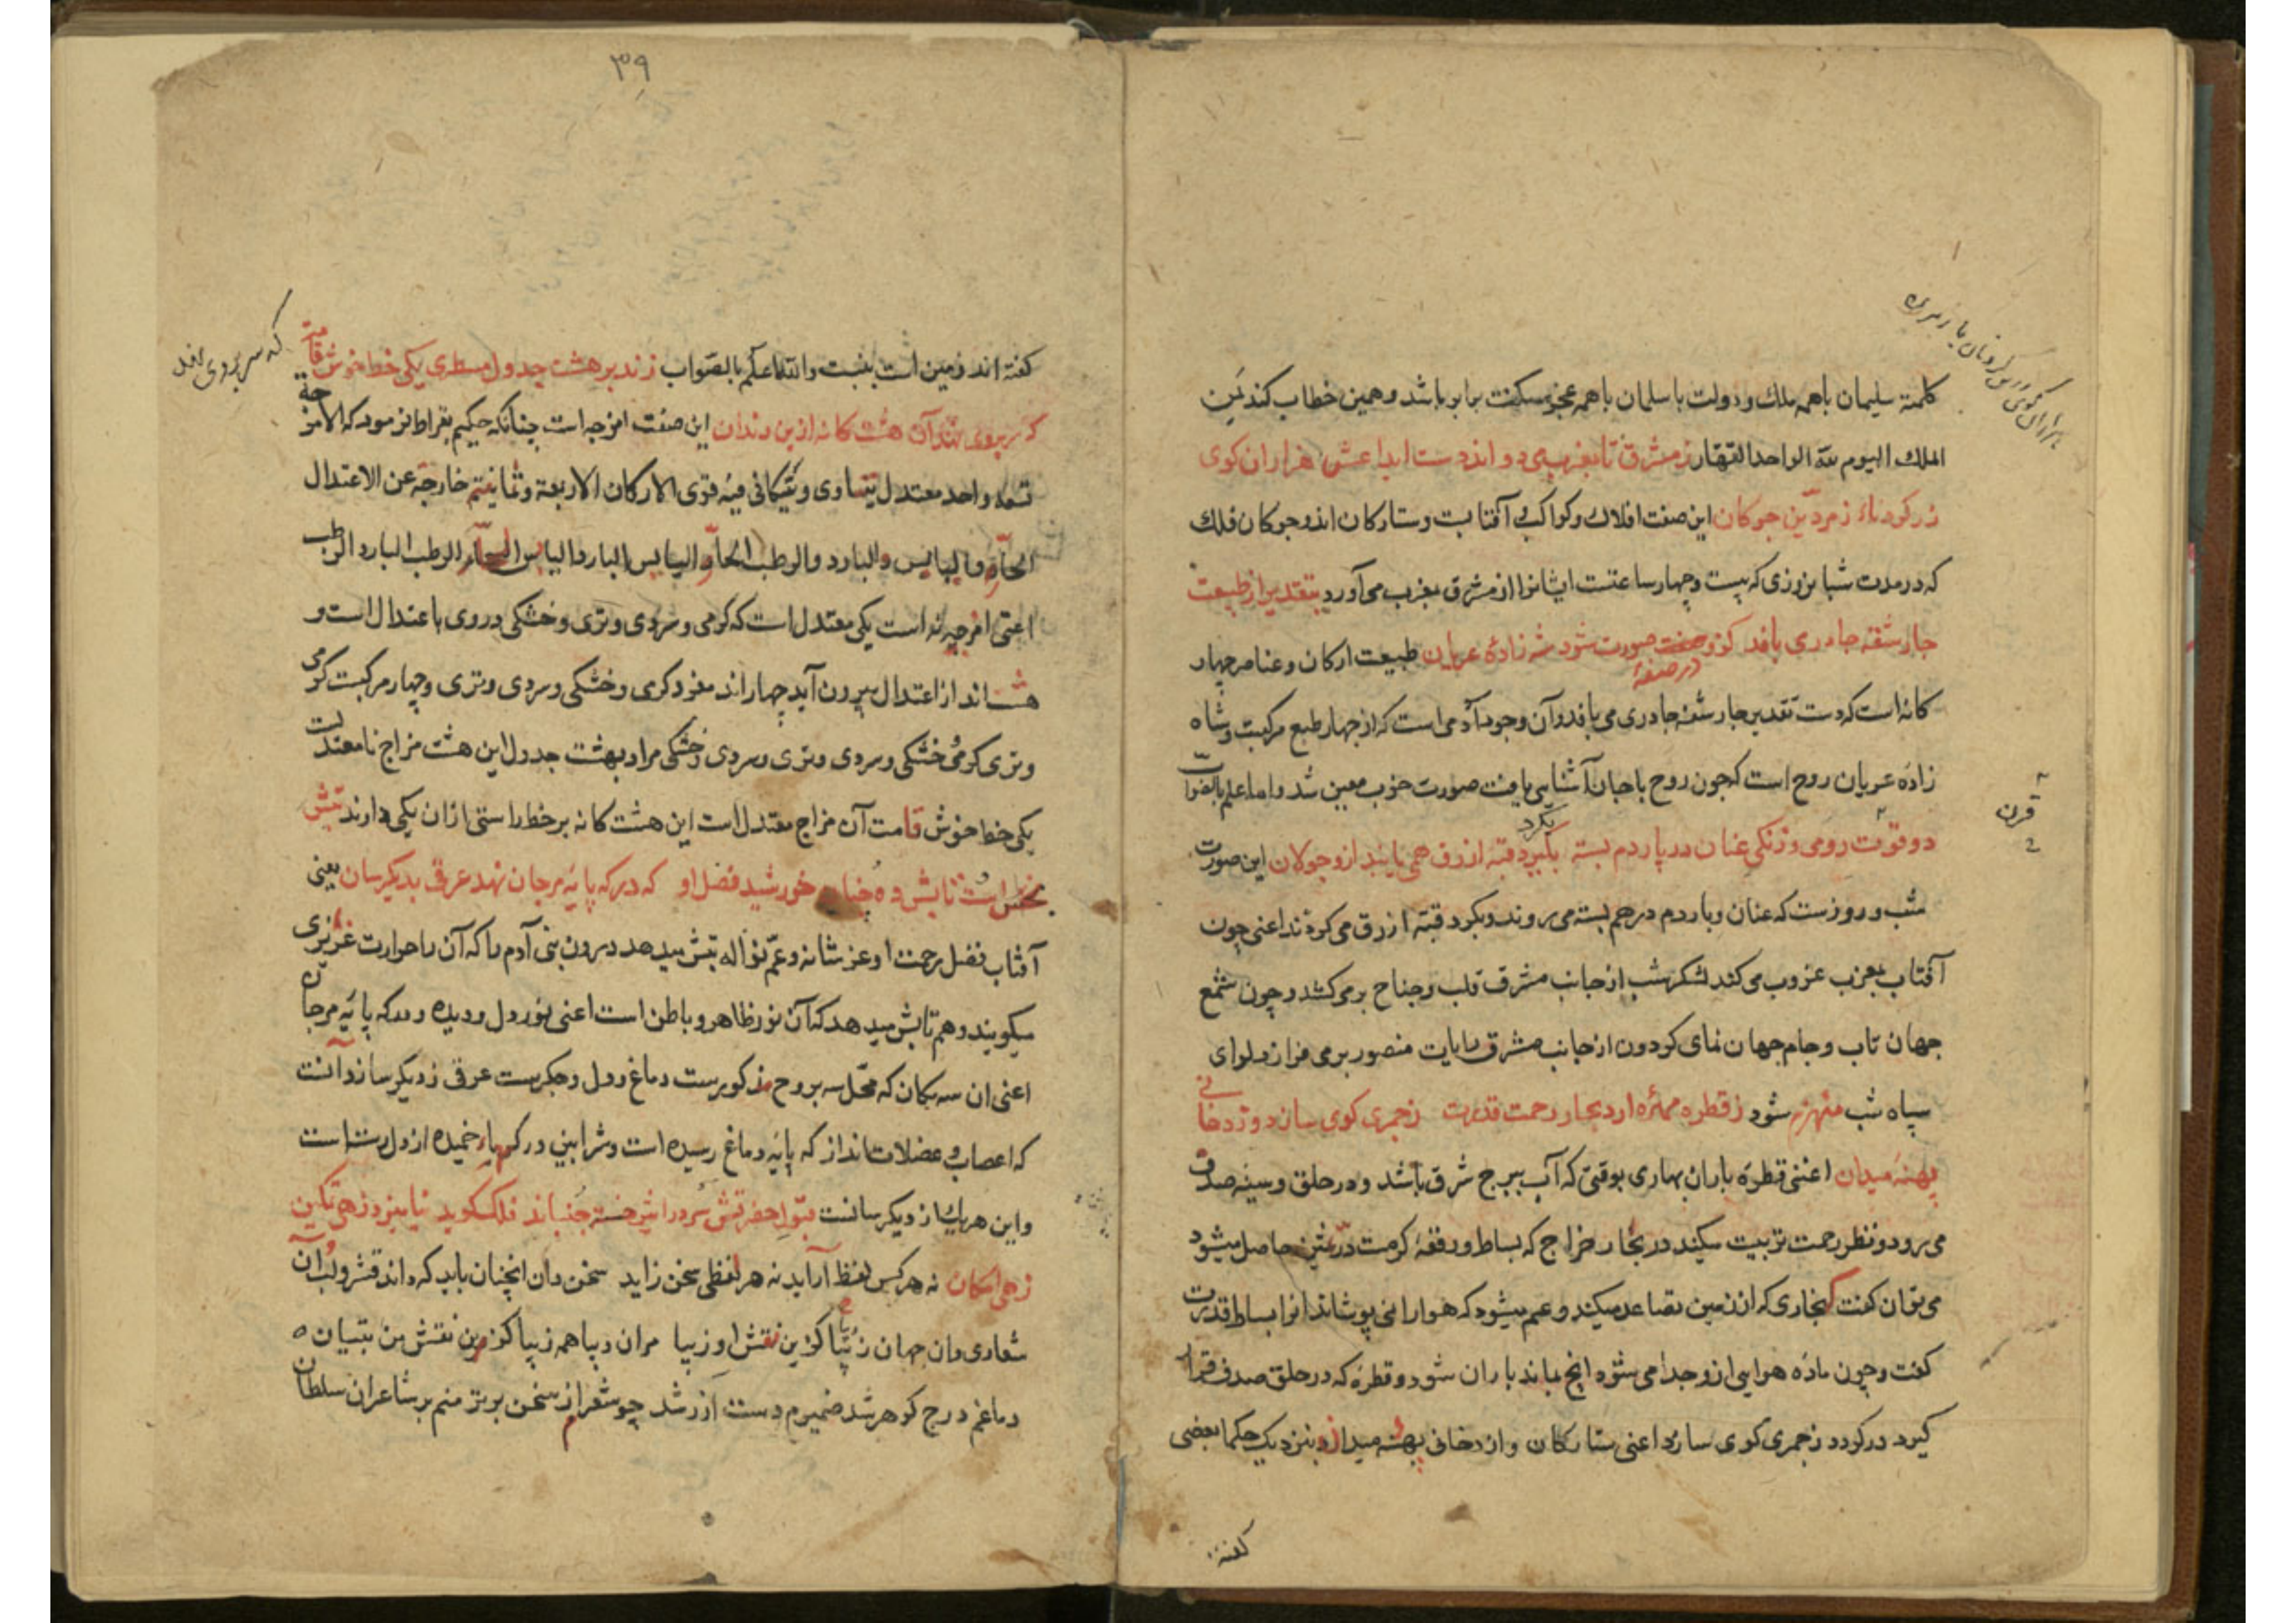 کلمتهٔ سلیمان باهمه ملک و دولت باسلمان باهمه عجز و مسکنت برابر باشد و همین خطاب کند لمن
الملک الیوم لله الواحد القهار ز مشرق تا بمغرب می دواند دست ابداعش هزاران کوی
زر کردنده ز مردین جوکان این صفت افلاک و کواکب آفتابست و ستارکان اند و جوکان فلک
که در مدت شبانروزی که بیست و چهار ساعتست ایشانرا از مشرق بمغرب می آورد بتقدیر از طبیعت
جار شقه جادری بافد کزو صورت شود شه زادهٔ عریان طبیعت ارکان و عناصر چهار
در صفهٔ
کانه است که دست تقدیر جار شقه جادری می بافد و آن وجود آدمی است که از جهار طبع مرکبست و شاه
زاده عریان روح است که جون روح باجان آشنایی یافت صورت خوب معین شد والله اعلم بالصواب
دو قوت رومی و زنکی عنان در پاردم بسته بکیرد قبهٔ ازرق همی یابند ازو جولان این صورت
بکرد
قرن
شب و روزست که عنان و باردم درهم بسته می روند و بکرد قبهٔ ازرق می کردند اعنی چون
آفتاب بمغرب غروب می کند لشکر شب از جانب مشرق قلب و جناح برمی کشد و چون شمع
جهان تاب و جام جهان نمای کردون از جانب مشرق رایات منصور برمی فرازد لوای
سپاه شب منهزم شود ز قطره مهره ارد بحار رحمت قدرت ز جمری کوی سازد و ز دخانی
پهنهٔ میدان اعنی قطرهٔ باران بهاری بوقتی که آب ببرج شرق باشد و در حلق و سینهٔ صدف
می رود و نظر رحمت تربیت میکند در بحار خراج که بساط و رقعهٔ کرمت در ثمین حاصل میشود
می توان کفت که بخاری که از زمین تصاعد میکند و عم میشود که هوا را می پوشاند انرا بساط قدرت
کفت و چون مادهٔ هوایی ازو جدا می شود انچ بماند باران شود و قطرهٔ که در حلق صدف قرار
کیرد در کردد ز جمری کوی سازد اعنی ستارکان و از دخان پهنهٔ میدان و بنزدیک حکما بعضی
کفته
۳۹
کفته اند زمین است بنسبت والله اعلم بالصواب زند بر هشت جدول مسطری یکی خط خوش قامت
که سر بروی نهد
که سر بروی نهند آن هشت کانه از بن دندان این صفت امزجه است چنانکه حکیم بقراط فرمود که الامزجة
تسعة واحد معتدل یتساوی و یتکافی فیه قوی الارکان الاربعة و ثمانیتهم خارجه عن الاعتدال
الحار والیابس والبارد والرطب الحار الیابس البارد الیابس الحار الرطب البارد الرطب
اعنی امزجه نه است یکی معتدل است که کرمی و سردی و تری و خشکی در وی باعتدال است و
هشت اند از اعتدال بیرون آید چهار اند مفرد کرمی و خشکی و سردی و تری و چهار مرکبست کرمی
و تری کرمی و خشکی و سردی و تری و سردی و خشکی مراد بهشت جدول این هشت مزاج نامعتدلست
یکی خط خوش قامت آن مزاج معتدل است این هشت کانه بر خط راستی ازان یکی دارند تپش
بخش است تابش ده خورشید فضل او که در که پایهٔ مرجان نهد عرقی بدیکرسان یعنی
آفتاب فضل رحمت او عز شانه و عم نواله تپش میدهد درون بنی آدم را که آن را حرارت غریزی
میکویند و هم تابش میدهد که آن نور ظاهر و باطن است اعنی نور دل و دیده و در که پایهٔ مرجان
اعنی ان سه مکان که محل سه روح مذکورست دماغ و دل و جکرست عرقی ز دیکر سان زد آنست
که اعصاب و عضلات اند از که پایهٔ دماغ رسیده است و شرایین در که پایه خمیده از دل رسته است
و این هریک از دیکر سانست
زهی امکان نه هر کس لفظ آراید نه هر لفظی سخن زاید سخن دان انچنان باید که داند قشر و لب آن
شعاری دان جهان زیبا کزین نقش او زیبا مران دیبا همه زیبا کزین نقش من بتیان
دماغم درج کوهر شد ضمیرم دست ازرشد چو شعر از سخن برتر منم بر شاعران سلطان